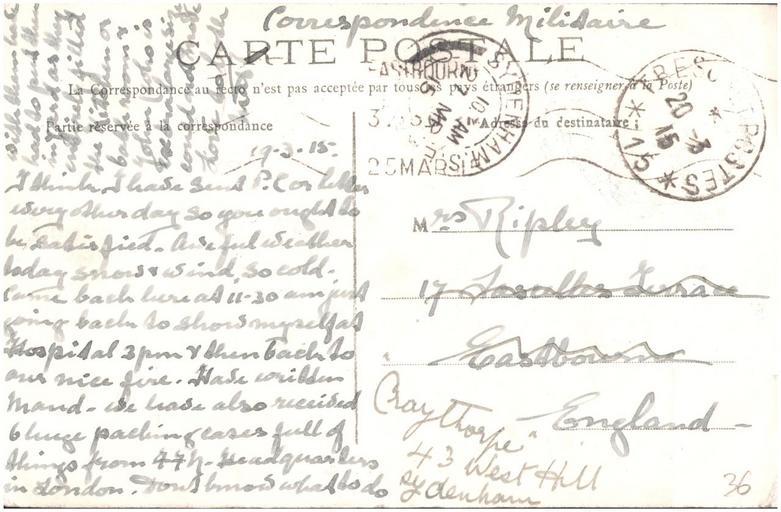 Correspondence Militaire
CARTE POSTALE
La Correspondance au recto n'est pas acceptée par tous les pays étrangers (se renseigner à la Poste)
Partie réservée à la correspondance
Adresse du destinataire
19-3-15.
I think I have sent P.C or letter
every other day so you ought to
be satisfied. Awful weather
today snow & wind, so cold.
Came back here at 11-30 am just
going back to show myself at
Hospital 3pm & then back to
our nice fire. Have written
Maud - we have also received
6 huge packing cases full of
things from Headquarters
in London. Don't know what to do
with them here
had to put them
in yard as they
Mrs Ripley
17 Terrace
Eastbourne
England -
"Craythorpe"
43 West Hill
Sydenham
EASTBOURNE
25 MAR 15
SYDENHAM
TRESOR ET POSTES
20-3
15
* 15 *
36